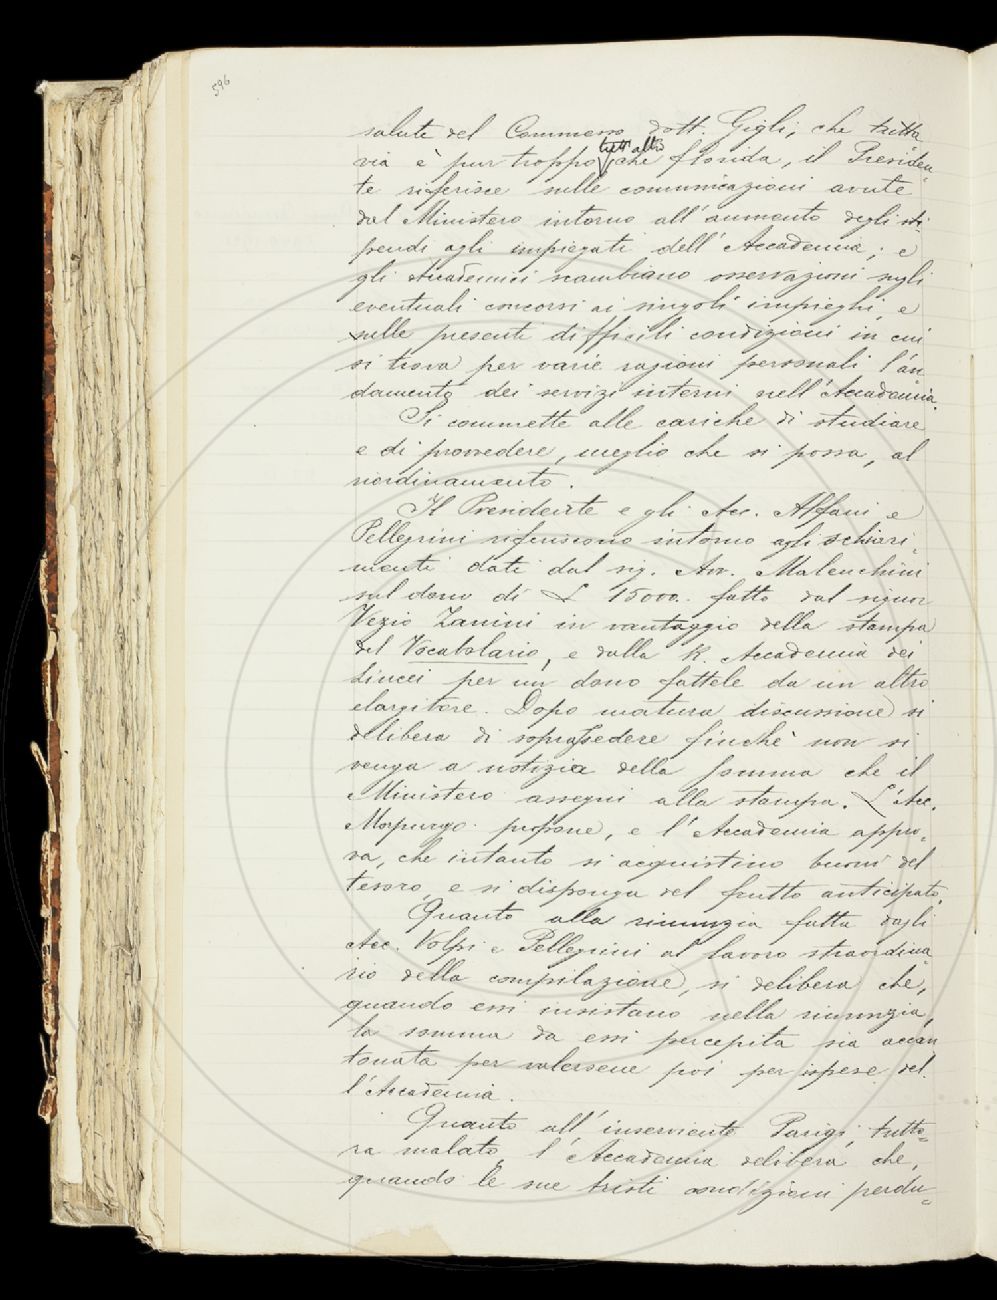 596
salute del Commesso dott. Gigli, che tutta
via è pur troppo tutt'altro che florida, il Presiden=
te riferisce sulle comunicazioni avute
dal Ministero intorno all'aumento degli sti
pendi agli impiegati dell'Accademia; e
gli Accademici scambiano osservazioni sugli
eventuali concorsi ai singoli impieghi, e
sulle presenti difficili condizioni in cui
si trova per varie ragioni personali l'an
damento dei servizi interni nell'Accademia.
Si commette alle cariche di studiare
e di provvedere, meglio che si possa, al
riordinamento.
Il Presidente e gli Acc. Alfani e
Pellegrini riferiscono intorno agli schiari=
menti dati dal sig. Avv. Malenchini
sul dono di L 15000. fatto dal signor
Vezio Zanini in vantaggio della stampa
del Vocabolario, e dalla R. Accademia dei
Lincei per un dono fattele da un altro
elargitore. Dopo matura discussione si
delibera di soprassedere finchè non si
venga a notizia della somma che il
Ministero assegni alla stampa. L'Acc.
Morpurgo propone, e l'Accademia appro=
va, che intanto si acquistino buoni del
tesoro, e si disponga del frutto anticipato.
Quanto alla rinunzia fatta dagli
Acc. Volpi e Pellegrini al lavoro straordina=
rio della compilazione, si delibera che,
quando essi insistano nella rinunzia,
la somma da essi percepita sia accan
tonata per valersene poi per ispese del
l'Accademia.
Quanto all'inserviente Parigi, tutto=
ra malato, l'Accademia delibera che,
quando le sue tristi condizioni perdu=